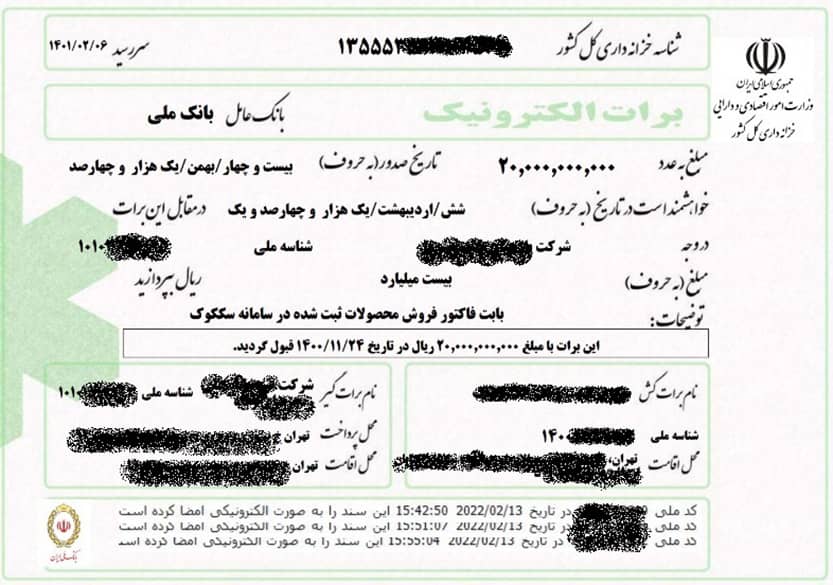 شناسه خزانه داری کل کشور ۱۳۵۵۵۳ سررسید ۱۴۰۱/۰۲/۰۶
جمهوری اسلامی ایران
وزارت امور اقتصادی و دارایی
خزانه داری کل کشور
برات الکترونیک بانک عامل بانک ملی
مبلغ به عدد ۲۰,۰۰۰,۰۰۰,۰۰۰ تاریخ صدور (به حروف) بیست و چهار/بهمن/یک هزار و چهارصد
خواهشمند است در تاریخ (به حروف) شش/اردیبهشت/یک هزار و چهارصد و یک در مقابل این برات
در وجه شرکت شناسه ملی ۱۰۱۰
مبلغ (به حروف) بیست میلیارد ریال بپردازید
توضیحات: بابت فاکتور فروش محصولات ثبت شده در سامانه سککوک
این برات با مبلغ ۲۰,۰۰۰,۰۰۰,۰۰۰ ریال در تاریخ ۱۴۰۰/۱۱/۲۴ قبول گردید.
نام برات کش
شناسه ملی ۱۴۰
محل اقامت تهران,
نام برات گیر شرکت شناسه ملی ۱۰۱۰
محل پرداخت تهران
محل اقامت تهران
کد ملی در تاریخ 2022/02/13 15:42:50 این سند را به صورت الکترونیکی امضا کرده است
کد ملی در تاریخ 2022/02/13 15:51:07 این سند را به صورت الکترونیکی امضا کرده است
کد ملی در تاریخ 2022/02/13 15:55:04 این سند را به صورت الکترونیکی امضا کرده است
بانک ملی ایران